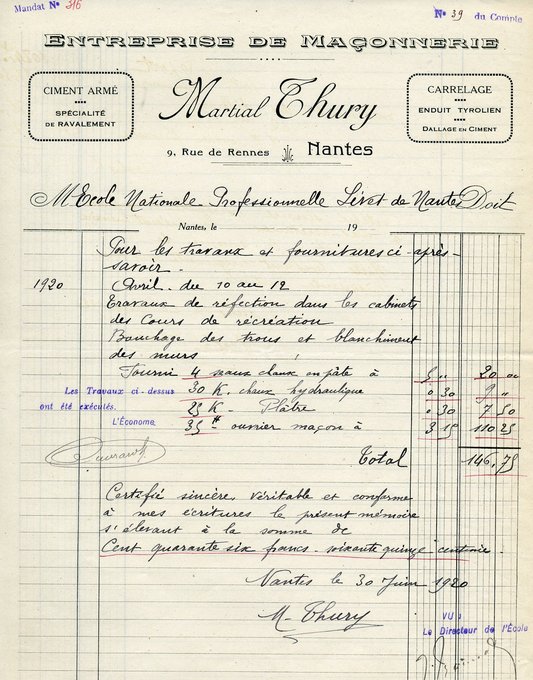 Mandat No 316
No 39 du Compte
ENTREPRISE DE MAÇONNERIE
CIMENT ARMÉ
SPÉCIALITÉ
DE RAVALEMENT
Martial Thury
9, Rue de Rennes Nantes
CARRELAGE
ENDUIT TYROLIEN
DALLAGE EN CIMENT
M Ecole Nationale Professionnelle Livet de Nantes Doit
Nantes, le 19
Pour les travaux et fournitures ci-après
savoir.
1920 Avril. du 10 au 12
Travaux de réfection dans les cabinets
des Cours de récréation
Bouchage des trous et blanchiment
des murs
Fourni 4 seaux chaux en pâte à 5 " 20 00
30 K. chaux hydraulique 0 30 9 "
25 K - Plâtre 0 30 7 50
35 H ouvrier maçon à 3 15 110 25
Les Travaux ci-dessus
ont été exécutés.
L'Économe
Total 146,75
Certifié sincère, véritable et conforme
à mes écritures le présent mémoire
s'élevant à la somme de
Cent quarante six francs - soixante quinze centimes.
Nantes le 30 Juin 1920
M. Thury
VU:
Le Directeur de l'École